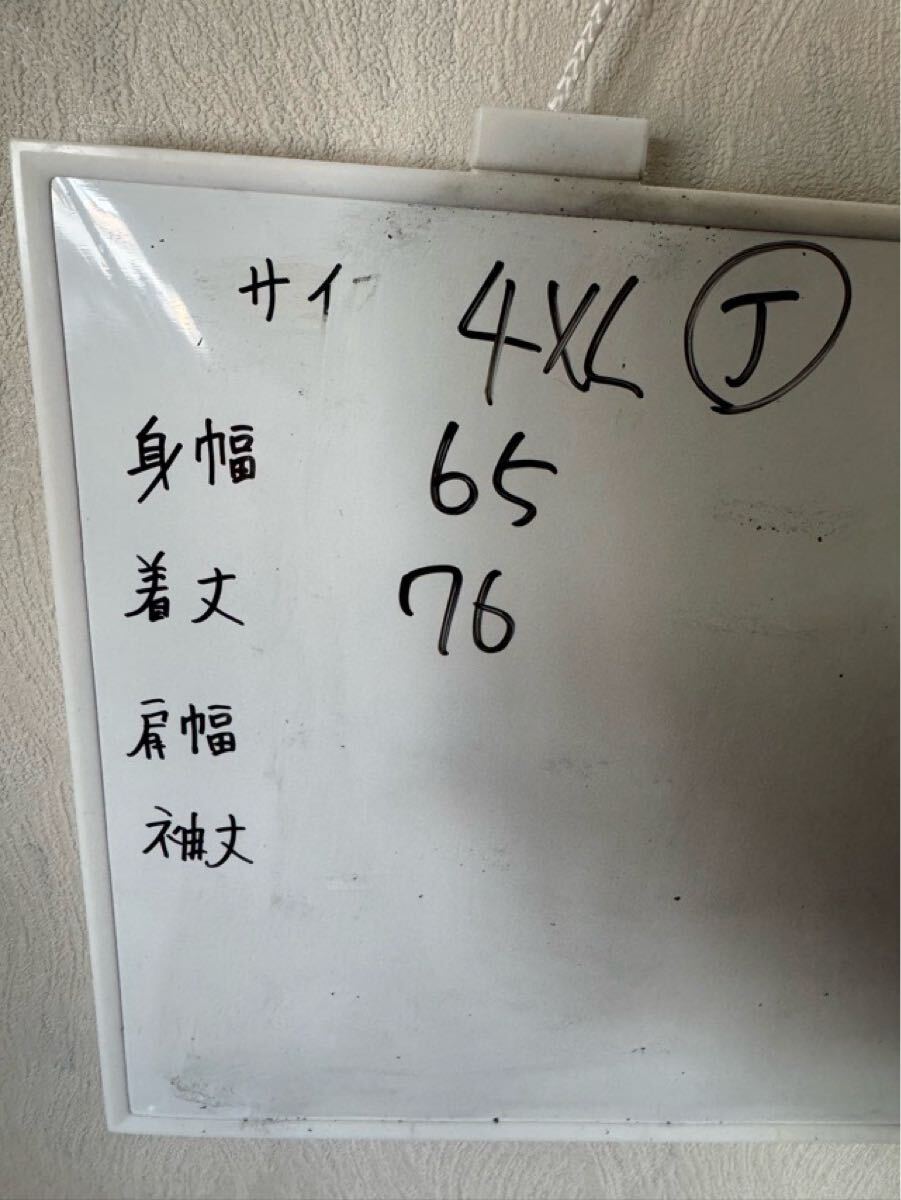 サイ 4XL J
身幅 65
着丈 76
肩幅
袖丈